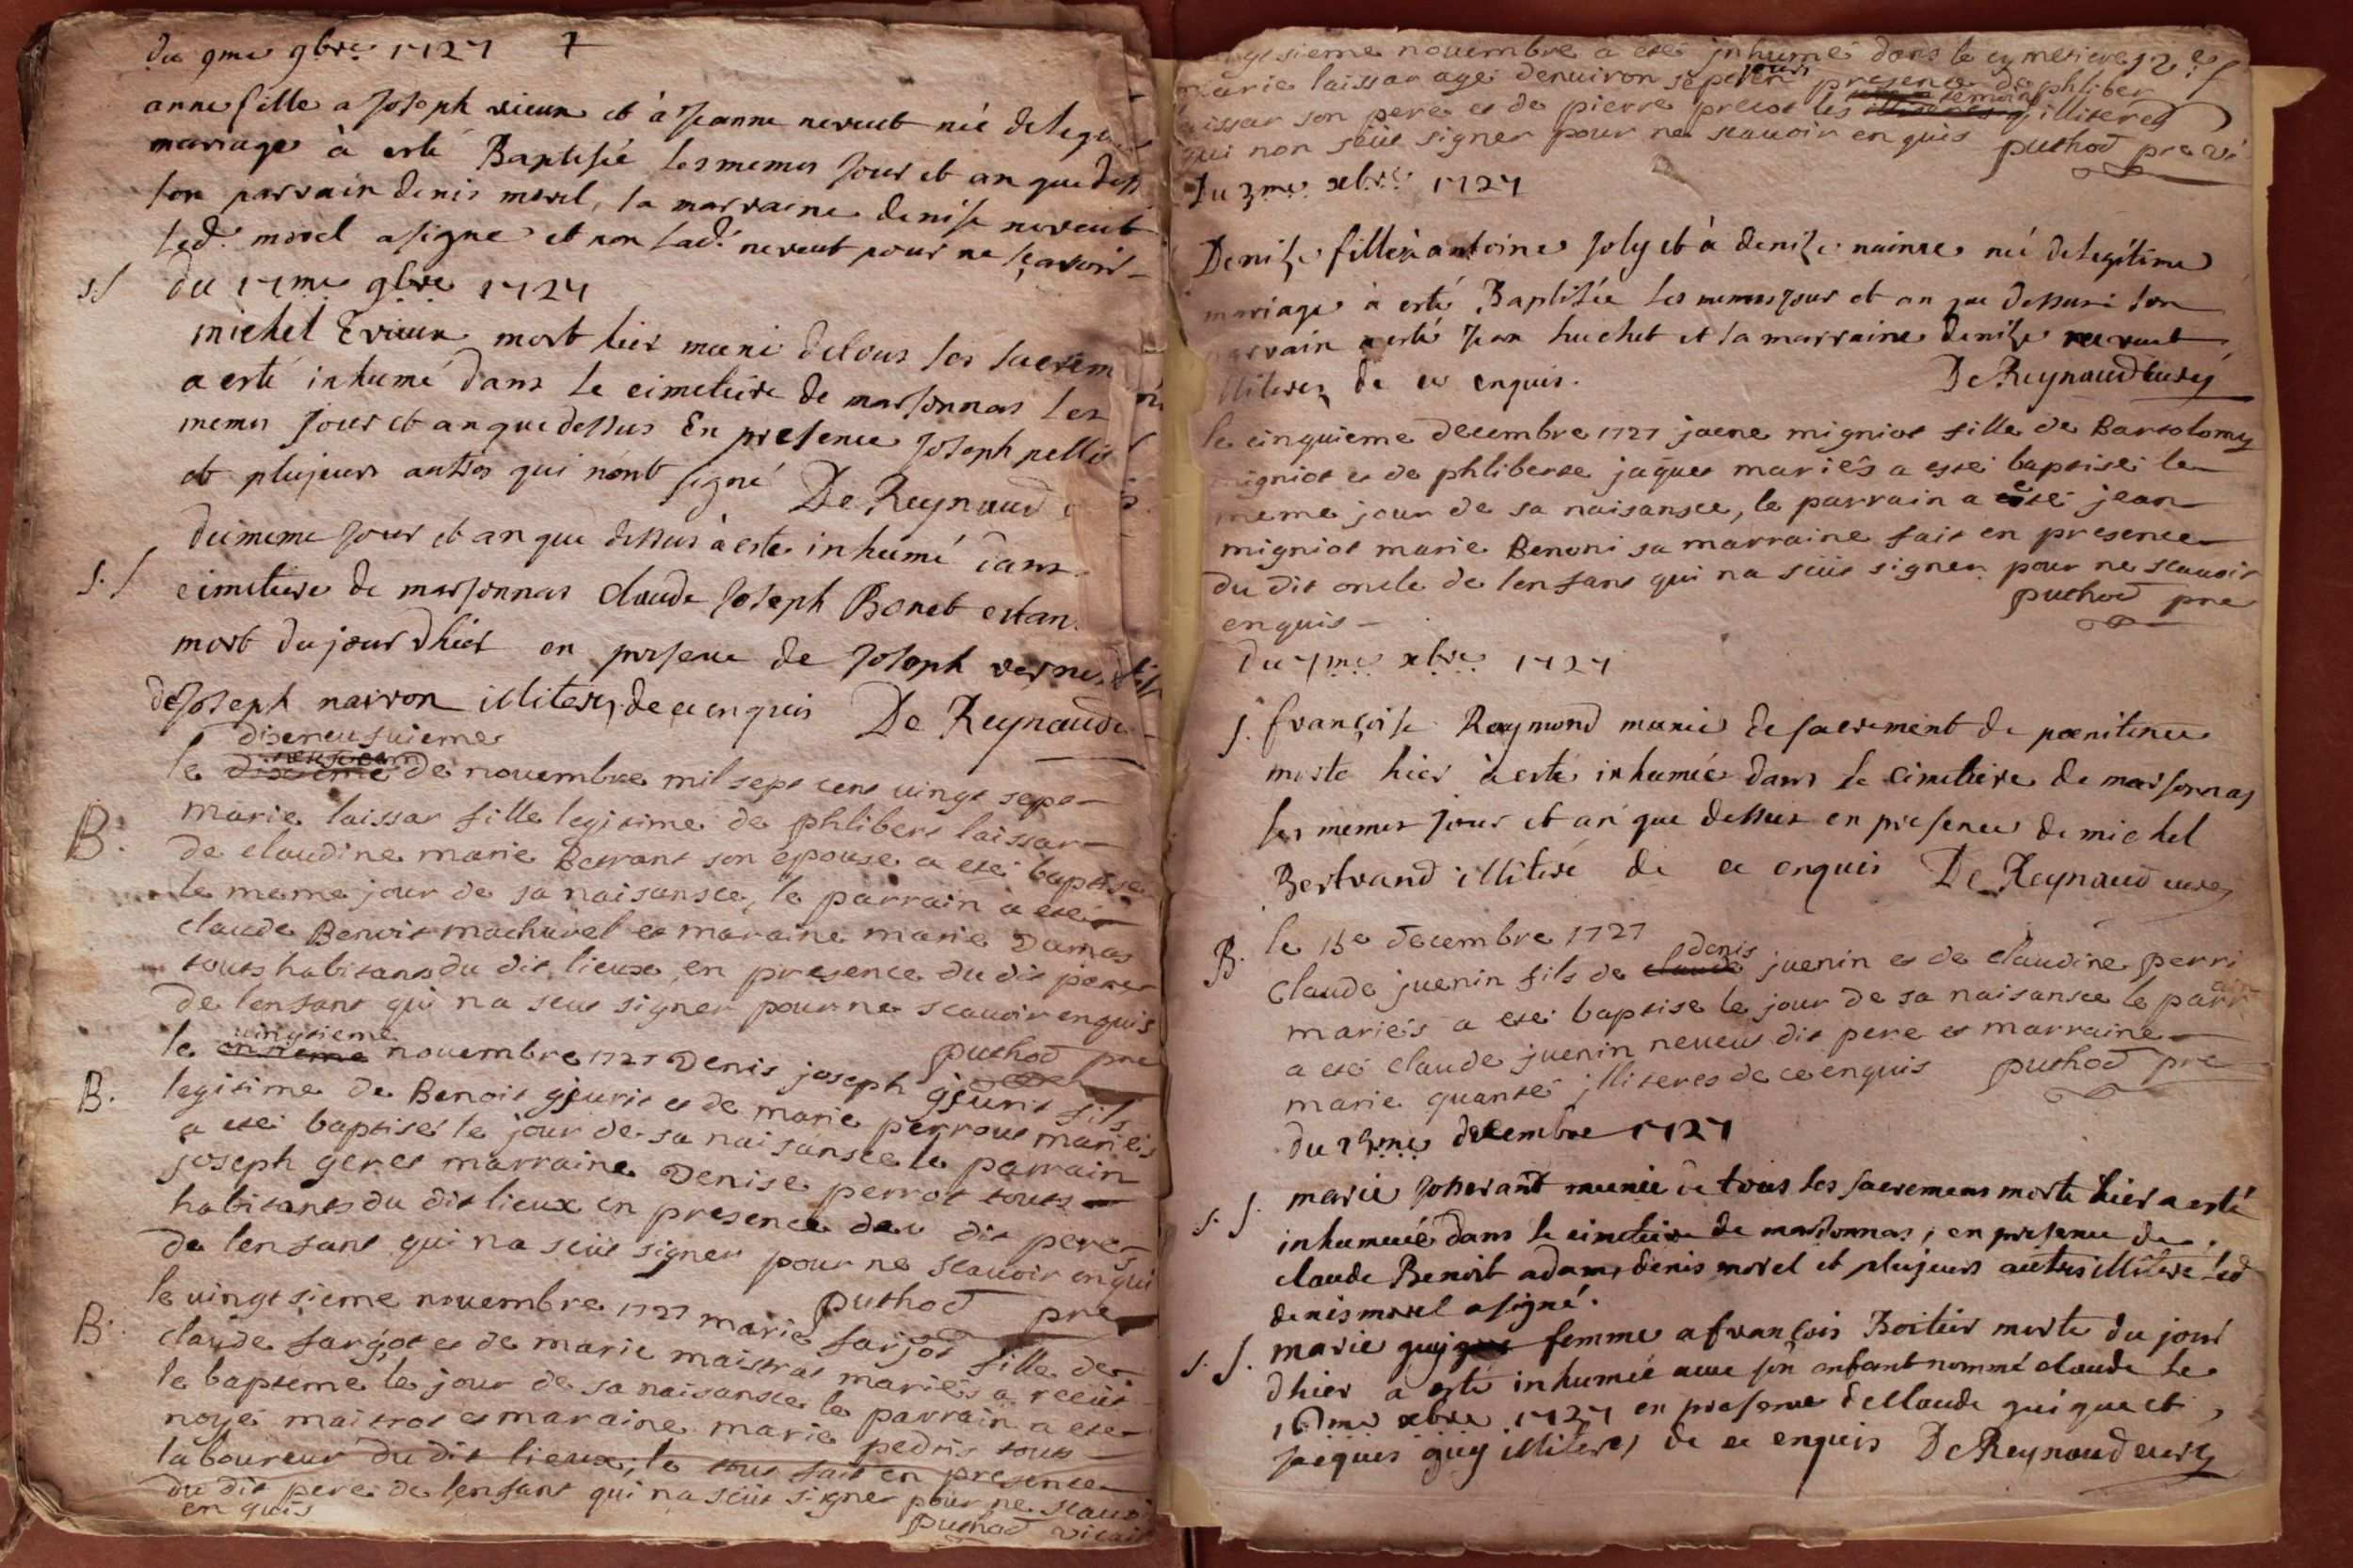 du 9me 9bre 1727 7
anne fille a Joseph vieux et à Jeanne neveut née de legi
mariage à esté Baptisée les memes Jour et an que dess
son parrain denis morel, la marraine denise neveut
led. morel a signe et non lad. neveut pour ne sçavoir
s. s du 17me 9bre 1727
michel Evieux mort hier muni de tous ses sacrem
a esté inhumé dans le cimetiere de marsonnas les
memes Jour et an que dessus En presence Joseph pellis
et plusieurs autres qui n'ont signé De Reynaud
du meme Jour et an que dessus à esté inhumé dans
s. s cimetiere de marsonnas claude Joseph Bonet estan
mort du jour d'hier en presence de Joseph verne
de Joseph narron illiteres de ce enquis De Reynaud
diseneufuieme
le de novembre mil sept cent vingt sept
B. marie laissar fille legitime de phlibert laissar
de claudine marie Berrant son epouse a eté baptisé
le meme jour de sa naisansce, le parrain a eté
claude Benoit machurel et maraine marie Damas
touts habitans du dit lieux en presence du dit perer
de lenfant qui na seut signer pour ne scavoir enquis
puthod pre
vingtieme
le onsieme novembre 1727 Denis joseph gjurit fils
B. legitime de Benoit gjurit et de marie perrout mariés
a eté baptisé le jour de sa naisansce le parrain
joseph geret marraine Denise perrot touts
habitants du dit lieux en presence du dit pere
de lenfant qui na seut signer pour ne scavoir enqui
puthod pre
le vingtsieme novembre 1727 marie farjot fille de
B. claude fargot et de marie maistrat mariés a reçüt
le bapteme le jour de sa naisansce le parrain a eté
noyé maitrot et maraine marie pedris touts
laboureur du dit lieux; le tout fait en presence
du dit pere de lenfant qui na seüt signer pour ne scavoi
enquis
puthod vicair
gtsieme novembre a eté jnhumé dans le cymetiere
marie laissar agé denviron sept jours en presence de phliber
laissar son pere et de pierre prevot les temoins jlliterés
qui non seüt signer pour ne scavoir enquis puthod pre vi
du 3me xbre 1727
Denise fille à antoine Joly et à denise nainre née de legitime
mariage à esté Baptisée les memes Jour et an que dessus son
parrain a esté Jean huchet et la marraine denise neveut
illiterez de ce enquis. De Reynaud curé
le cinquieme decembre 1727 jaene migniot fille de Bartolomy
migniot et de phliberte jaques mariés a eté baptisé le
meme jour de sa naisansce, le parrain a eté jean
migniot marie Benoni sa marraine fait en presence
du dit oncle de lenfant qui na seüt signer pour ne scavoir
enquis puthod pre
du 7me xbre 1727
s. françoise Raymond munie de sacrement de pœnitence
morte hier à esté inhumée dans le cimetiere de marsonnas
les memes Jour et an que dessus en presence de michel
Bertrand illiteré de ce enquis De Reynaud curé
le 15e decembre 1727
B. claude juenin fils de denis juenin et de claudine perri
mariés a eté baptisé le jour de sa naisansce le parr
a eté claude juenin neveu dit pere et marraine
marie quanté jlliteres de ce enquis puthod pre
du 15me decembre 1727
s. s. marie Joherant munie de tous les sacremens morte hier a esté
inhumée dans le cimetiere de marsonnas, en presence de
claude Benoit adam, denis morel et plusieurs autres illiteré led
denis morel a signé.
s. s. marie guigue femme a françois Boitier morte du jour
dhier a esté inhumée avec son enfant nommé claude le
16me xbre 1727 en presence de claude guigue et
jacques guy illiteres de ce enquis De Reynaud curé